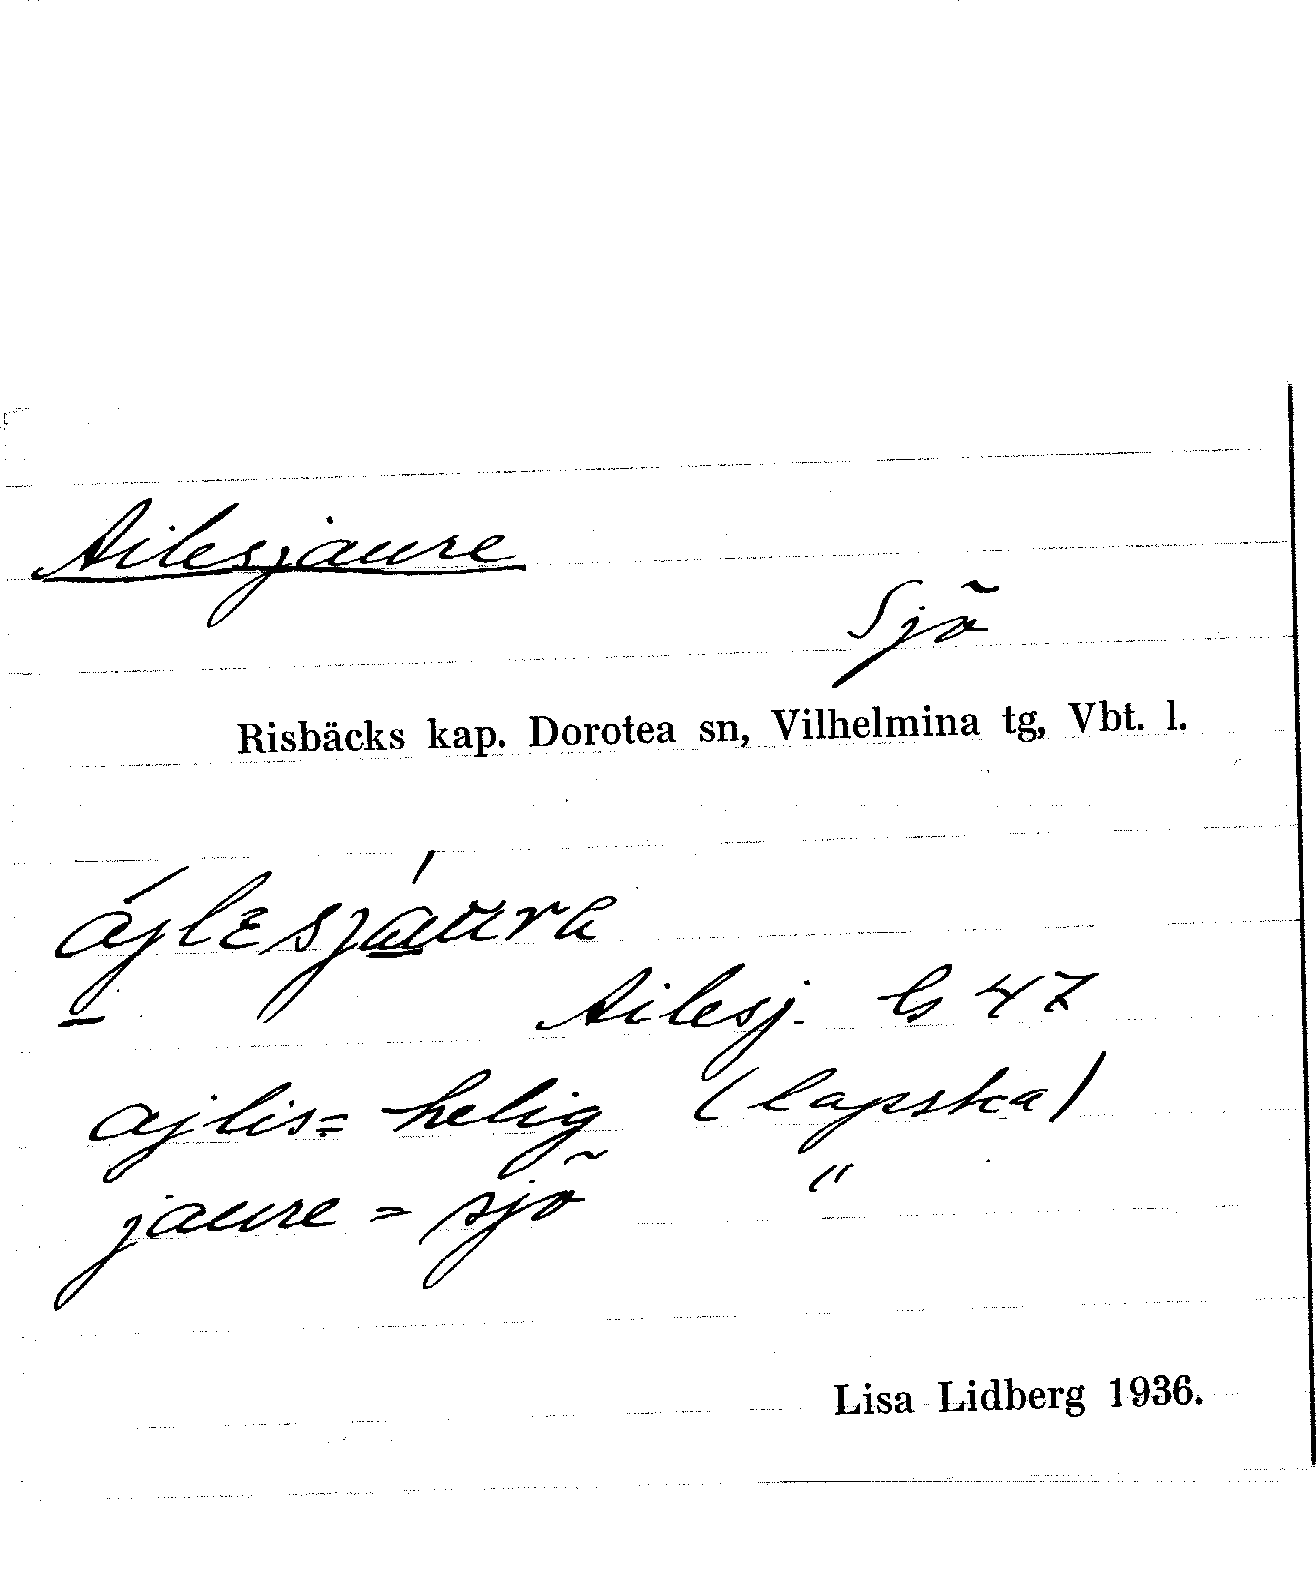 Ailesjaure
Sjö
Risbäcks kap. Dorotea sn, Vilhelmina tg, Vbt. l.
ájlɛsjáura
Ailesj. G 47
ajlis = helig (lapska)
jaure = sjö "
Lisa Lidberg 1936.